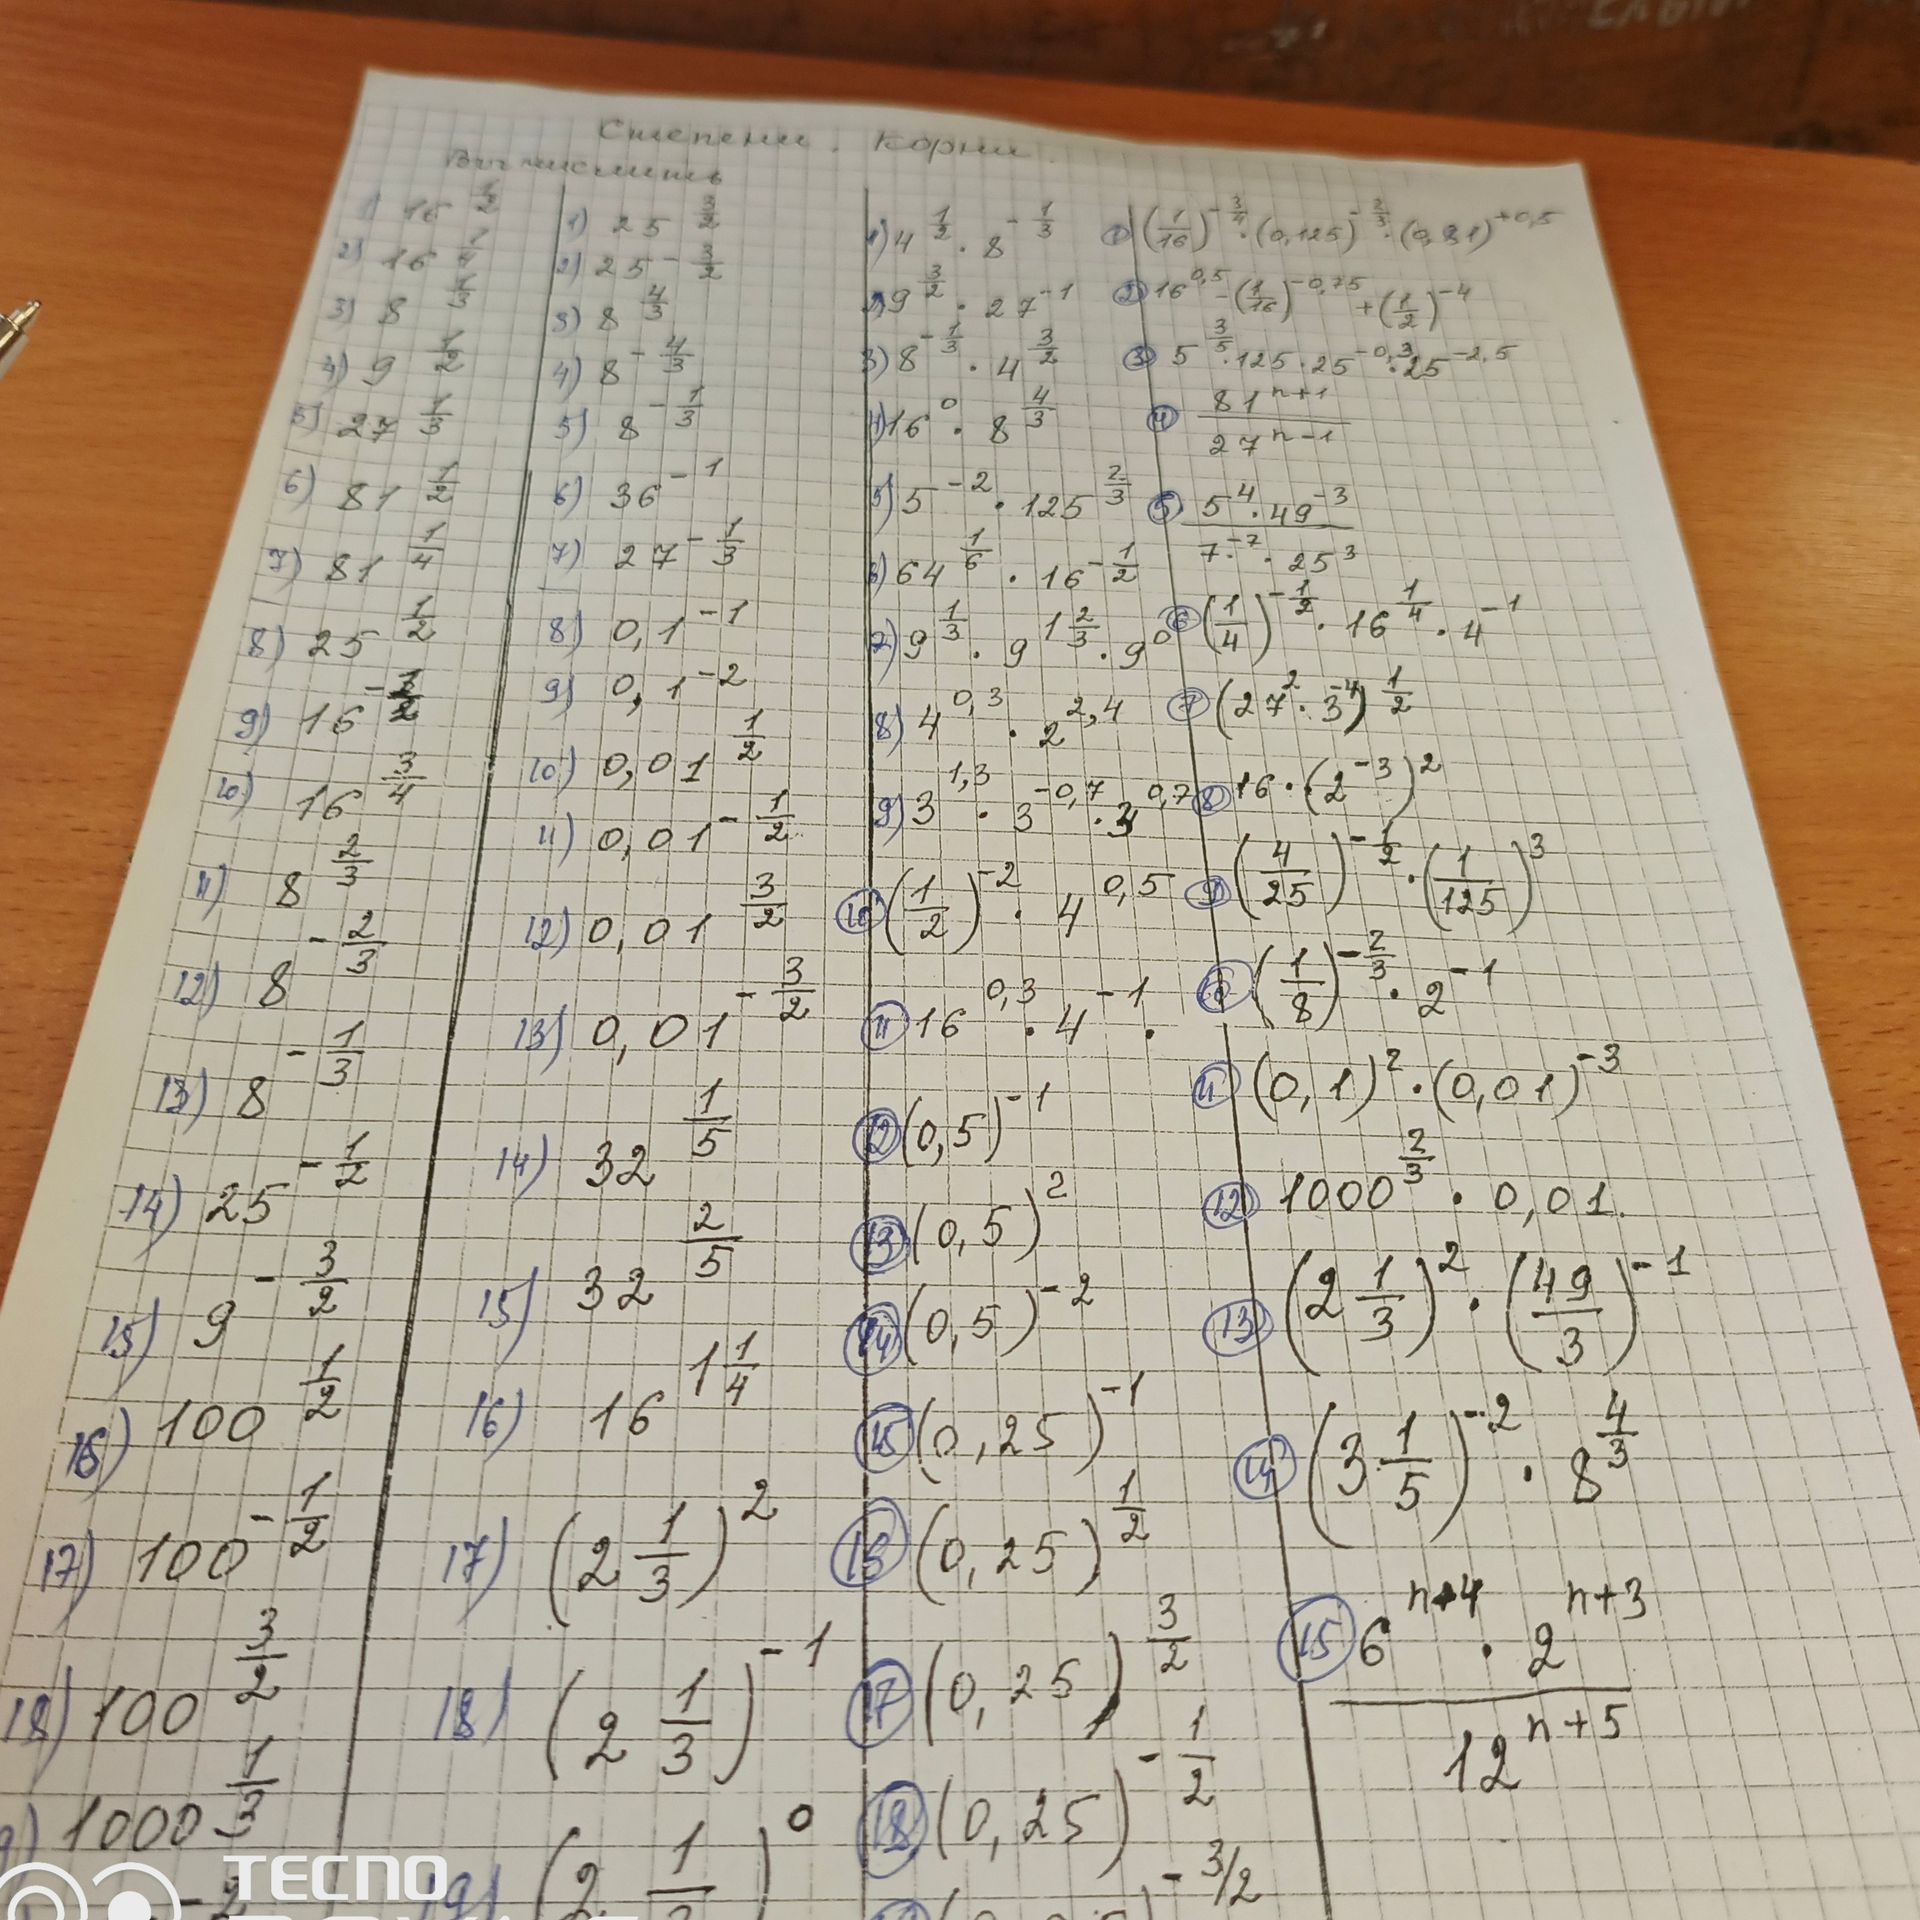 Степени. Корни.
Вычислить
1) 16^(1/2)
2) 16^(1/4)
3) 8^(1/3)
4) 9^(1/2)
5) 27^(1/3)
6) 81^(1/2)
7) 81^(1/4)
8) 25^(1/2)
9) 16
10) 16^(3/4)
11) 8^(2/3)
12) 8^(-2/3)
13) 8^(-1/3)
14) 25^(-1/2)
15) 9^(-3/2)
16) 100^(1/2)
17) 100^(-1/2)
18) 100^(3/2)
1000^(1/3)
1) 25^(3/2)
2) 25^(-3/2)
3) 8^(4/3)
4) 8^(-4/3)
5) 8^(-1/3)
6) 36^(-1)
7) 27^(-1/3)
8) 0,1^(-1)
9) 0,1^(-2)
10) 0,01^(1/2)
11) 0,01^(-1/2)
12) 0,01^(3/2)
13) 0,01^(-3/2)
14) 32^(1/5)
15) 32^(2/5)
16) 16^(1 1/4)
17) (2 1/3)^2
18) (2 1/3)^(-1)
19) (2 1/3)^0
1) 4^(1/2) · 8^(-1/3)
2) 9^(3/2) · 27^(-1)
3) 8^(-1/3) · 4^(3/2)
4) 16^0 · 8^(4/3)
5) 5^(-2) · 125^(2/3)
6) 64^(1/6) · 16^(-1/2)
7) 9^(1/3) · 9^(1 2/3) · 9^0
8) 4^(0,3) · 2^(2,4)
9) 3^(1,3) · 3^(-0,7) · 3^(0,7)
10 (1/2)^(-2) · 4^(0,5)
11 16^(0,3) · 4^(-1) ·
12 (0,5)^(-1)
13 (0,5)^2
14 (0,5)^(-2)
15 (0,25)^(-1)
16 (0,25)^(1/2)
17 (0,25)^(3/2)
18 (0,25)^(-1/2)
-3/2
1 (1/16)^(-3/4) · (0,125)^(-2/3) · (0,81)^(+0,5)
2 16^(0,5) - (1/16)^(-0,75) + (1/2)^(-4)
3 5^(3/5) · 125 · 25^(-0,3) · 25^(-2,5)
4 81^(n+1) / 27^(n-1)
5 5^4 · 49^(-3) / 7^(-7) · 25^3
6 (1/4)^(-1/2) · 16^(1/4) · 4^(-1)
7 (27^2 · 3^(-4))^(1/2)
8 16 · (2^(-3))^2
9 (4/25)^(-1/2) · (1/125)^3
10 (1/8)^(-2/3) · 2^(-1)
11 (0,1)^2 · (0,01)^(-3)
12 1000^(2/3) · 0,01.
13 (2 1/3)^2 · (49/3)^(-1)
14 (3 1/5)^(-2) · 8^(4/3)
15 6^(n+4) · 2^(n+3) / 12^(n+5)
TECNO